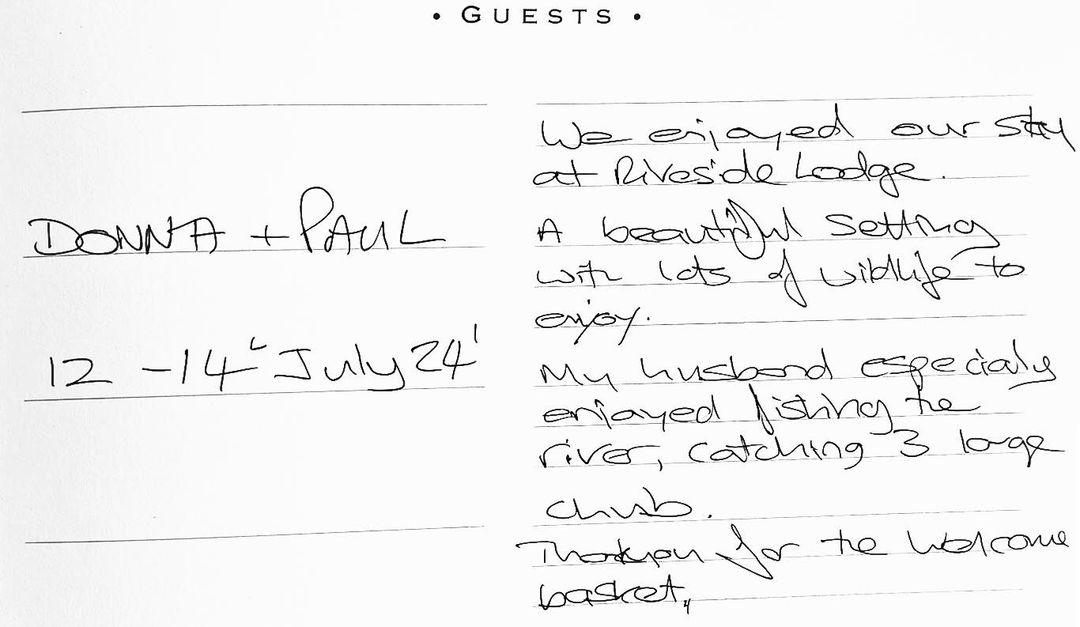 • GUESTS •
DONNA + PAUL
12 - 14 July 24'
We enjoyed our stay
at Riveside Lodge.
A beautiful setting
with lots of wildlife to
enjoy.
My husband especialy
enjoyed fishing the
river, catching 3 large
chub.
Thankyou for the welcome
basket,